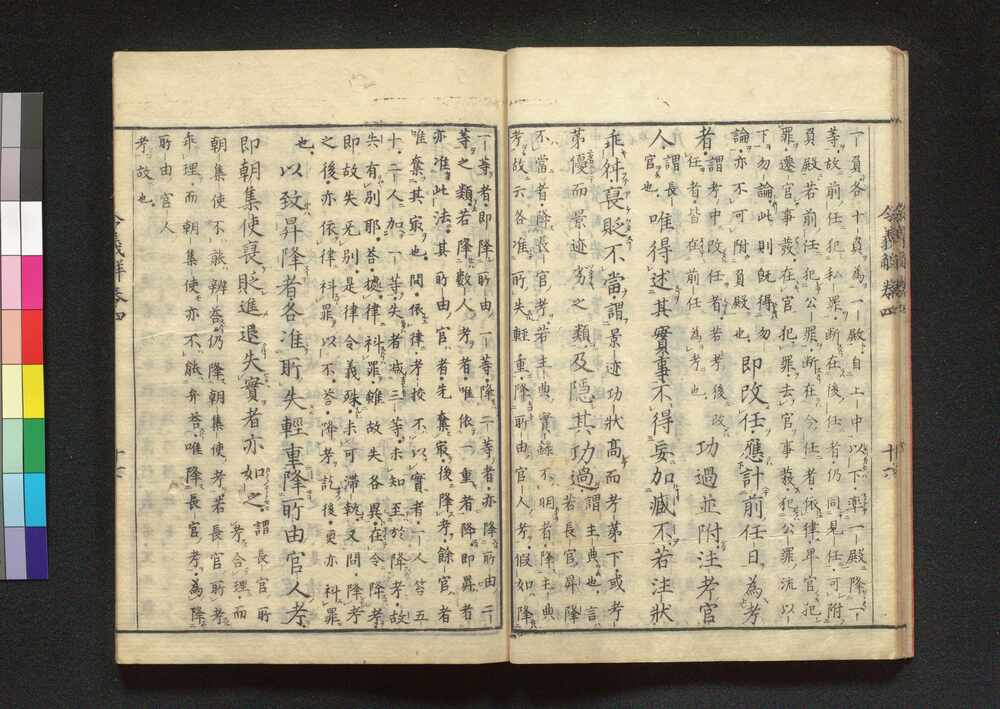 一員各十員為一殿自上中以下率一殿降一
等故前任犯私罪断在後任者仍同見任可附
員殿若前任犯公罪断在今任者依律卑官犯
罪遷官事發在官犯罪去官事發犯公罪流以
下勿論此則既得勿
論亦不可附員殿也即改任應計前任日為考
者謂考中改任者若考後改
任者皆在前任為考也功過並附注考官
人謂長
官也唯得述其實事不得妄加減不若注狀
乖舛褒貶不當謂景迹功狀高而考第下或考
第優而景迹劣之類及隠其功過謂主典也言
若長官昇降
不當者降長官考若主典實録不明者降主典
考故云各准所失輕重降所由官人考假如降
令義解巻四
十六
一等者即降所由一等降二等者亦降所由二
等之類若降數人考者唯依一重者降即昇者
亦准此法其所由官者先棄冣後降考餘官者
唯棄其冣也問依律考校不以實者一人笞五
十二人加一等失者減三等未知至於降考故
失有別耶荅據律科罪雖故失各異在令降考
即故失旡別是律令義殊未可滞執又問降考
之後亦依律科罪以不荅降考訖後更亦科罪
也
以致昇降者各准所失輕重降所由官人考
即朝集使褒貶進退失實者亦如之謂長官所
考合理而
朝集使不能辨荅仍降朝集使考若長官所考
乖理而朝集使亦不能弁荅唯降長官考為降
所由官人
考故也
令義解巻四
十六